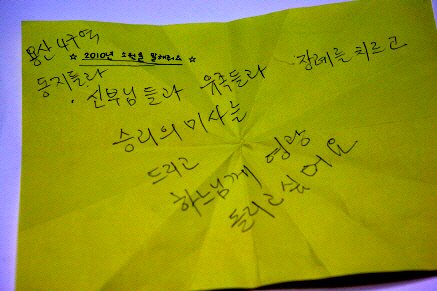 용산 4구역
☆ 2010년 소원을 말해줘요 ☆
동지들과
신부님들과 유족들과 장례를 치르고
승리의 미사를
드리고
하느님께 영광
돌리고 싶어요